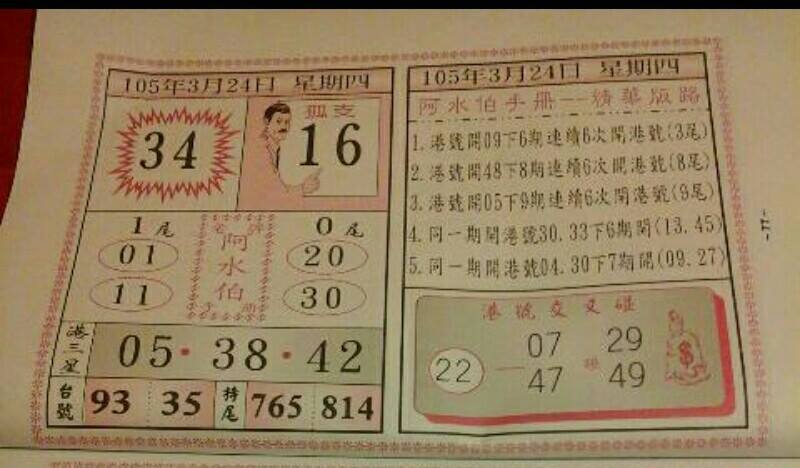 105年3月24日 星期四
34
孤支
16
1尾
0尾
01
阿水伯
20
11
30
港三星
05·38·42
台號
93
35
特尾
765
814
105年3月24日 星期四
阿水伯手冊--精華版路
1.港號開09下6期連續6次開港號(3尾)
2.港號開48下8期連續6次開港號(8尾)
3.港號開05下9期連續6次開港號(9尾)
4.同一期開港號30.33下6期開(13.45)
5.同一期開港號04.30下7期開(09.27)
港號交叉碰
22
07
47
碰
29
49
$